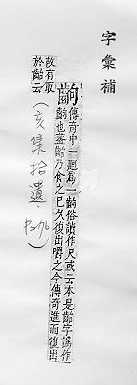 字彙補
齣
傳奇中一廻爲一齣俗讀作尺或云本是齝字譌作
齣也蓋齝乃食之已久復出嚼之今傳奇進而復出
故有取
於齝云
(亥集拾遺)